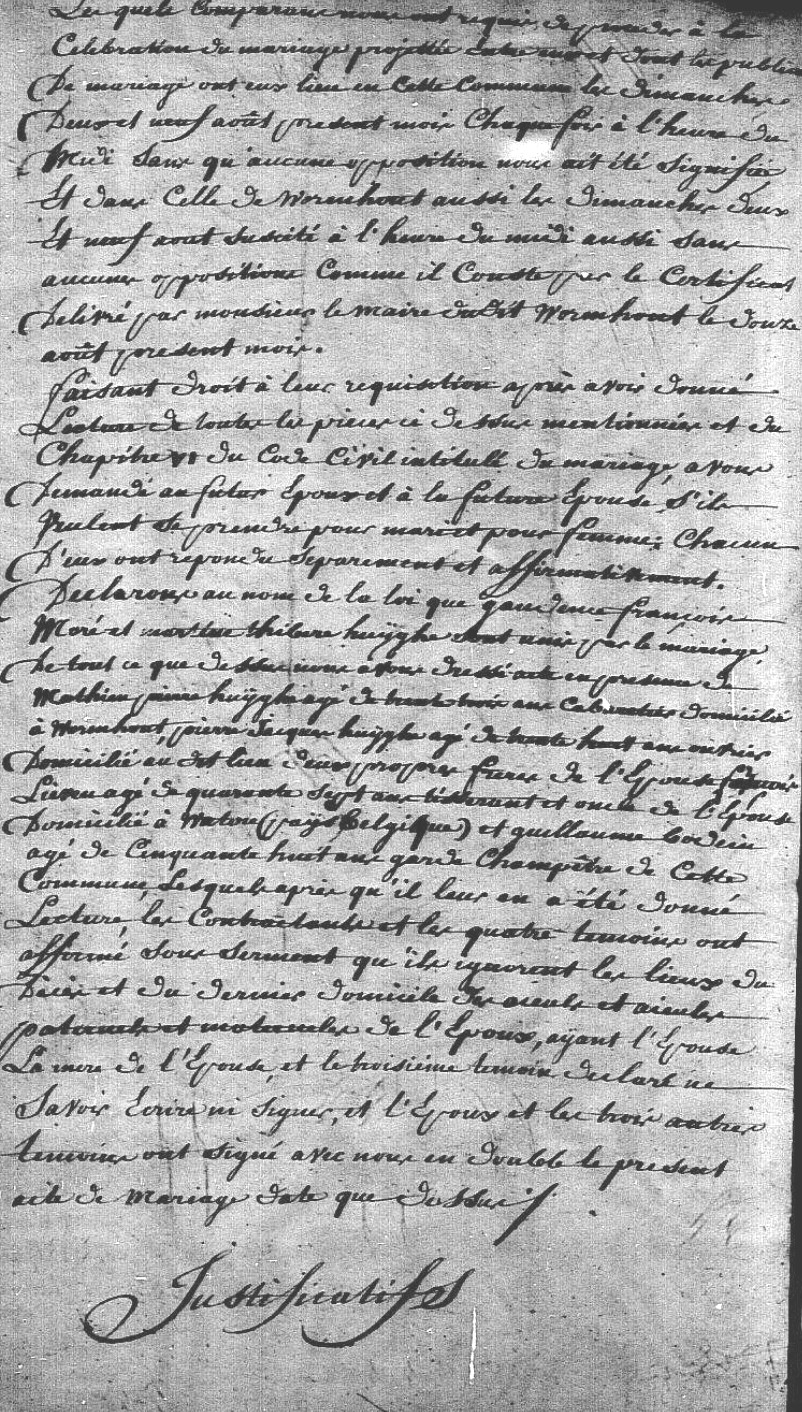 Les quels Comparans nous ont requis de proceder à la
Celebration du mariage projettée entre eux et dont les public
De mariage ont eux lieu en Cette Commune les dimanches
Deux et neuf août present mois Chaque fois à l'heure du
Midi Sans qu'aucune opposition nous ait été Signifiée
Et dans Celle de Wormhout aussi les dimanches deux
Et neuf aout suscité à l'heure du midi aussi Sans
aucunes oppositions Comme il Conste par le Certificat
Delivré par monsieur le maire dudit Wormhout le douze
août present mois.
faisant droit à leur requisition après avoir donné
Lecture de toutes les pieces ci dessus mentionnées et du
Chapitre VI du Code Civil intitulé du mariage, avons
Demandé au futur Epoux et à la future Epouse S'ils
Veulent se prendre pour mari et pour femme; Chacun
D'eux ont repondu Separement et affirmativement.
Declarons au nom de la loi que gaudence françois
Moré et huÿghe Sont unis par le mariage,
De tout ce que dessus nous avons dressé acte en presence de
Mathieu pierre huÿghe agé de trente trois ans Cabaretier domicilié
à Wormhout, pierre Jacques huÿghe agé de trente huit ans ouvrier
Domicilié au dit lieu deux propres freres de l'Epouse
Lieven agé de quarante sept ans tisserant et oncle de l'Epouse
Domicilié à Watou (paÿs Belgique) et guillaume bodein
agé de Cinquante huit ans garde Champêtre de Cette
Commune, Lesquels après qu'il leur en a été donné
Lecture, les Contractants et les quatre temoins ont
affirmé sous serment qu'ils ignorent les lieux du
Décès et du dernier domicile des aieuls et aieules
paternels et maternels de l'Epoux, aÿant l'Epouse
La mere de l'Epouse, et le troisième temoin declaré ne
Savoir Ecrire ni Signer, et l'Epoux et les trois autres
temoins ont signé avec nous en double le present
acte de Mariage date que dessus
Justificatifs